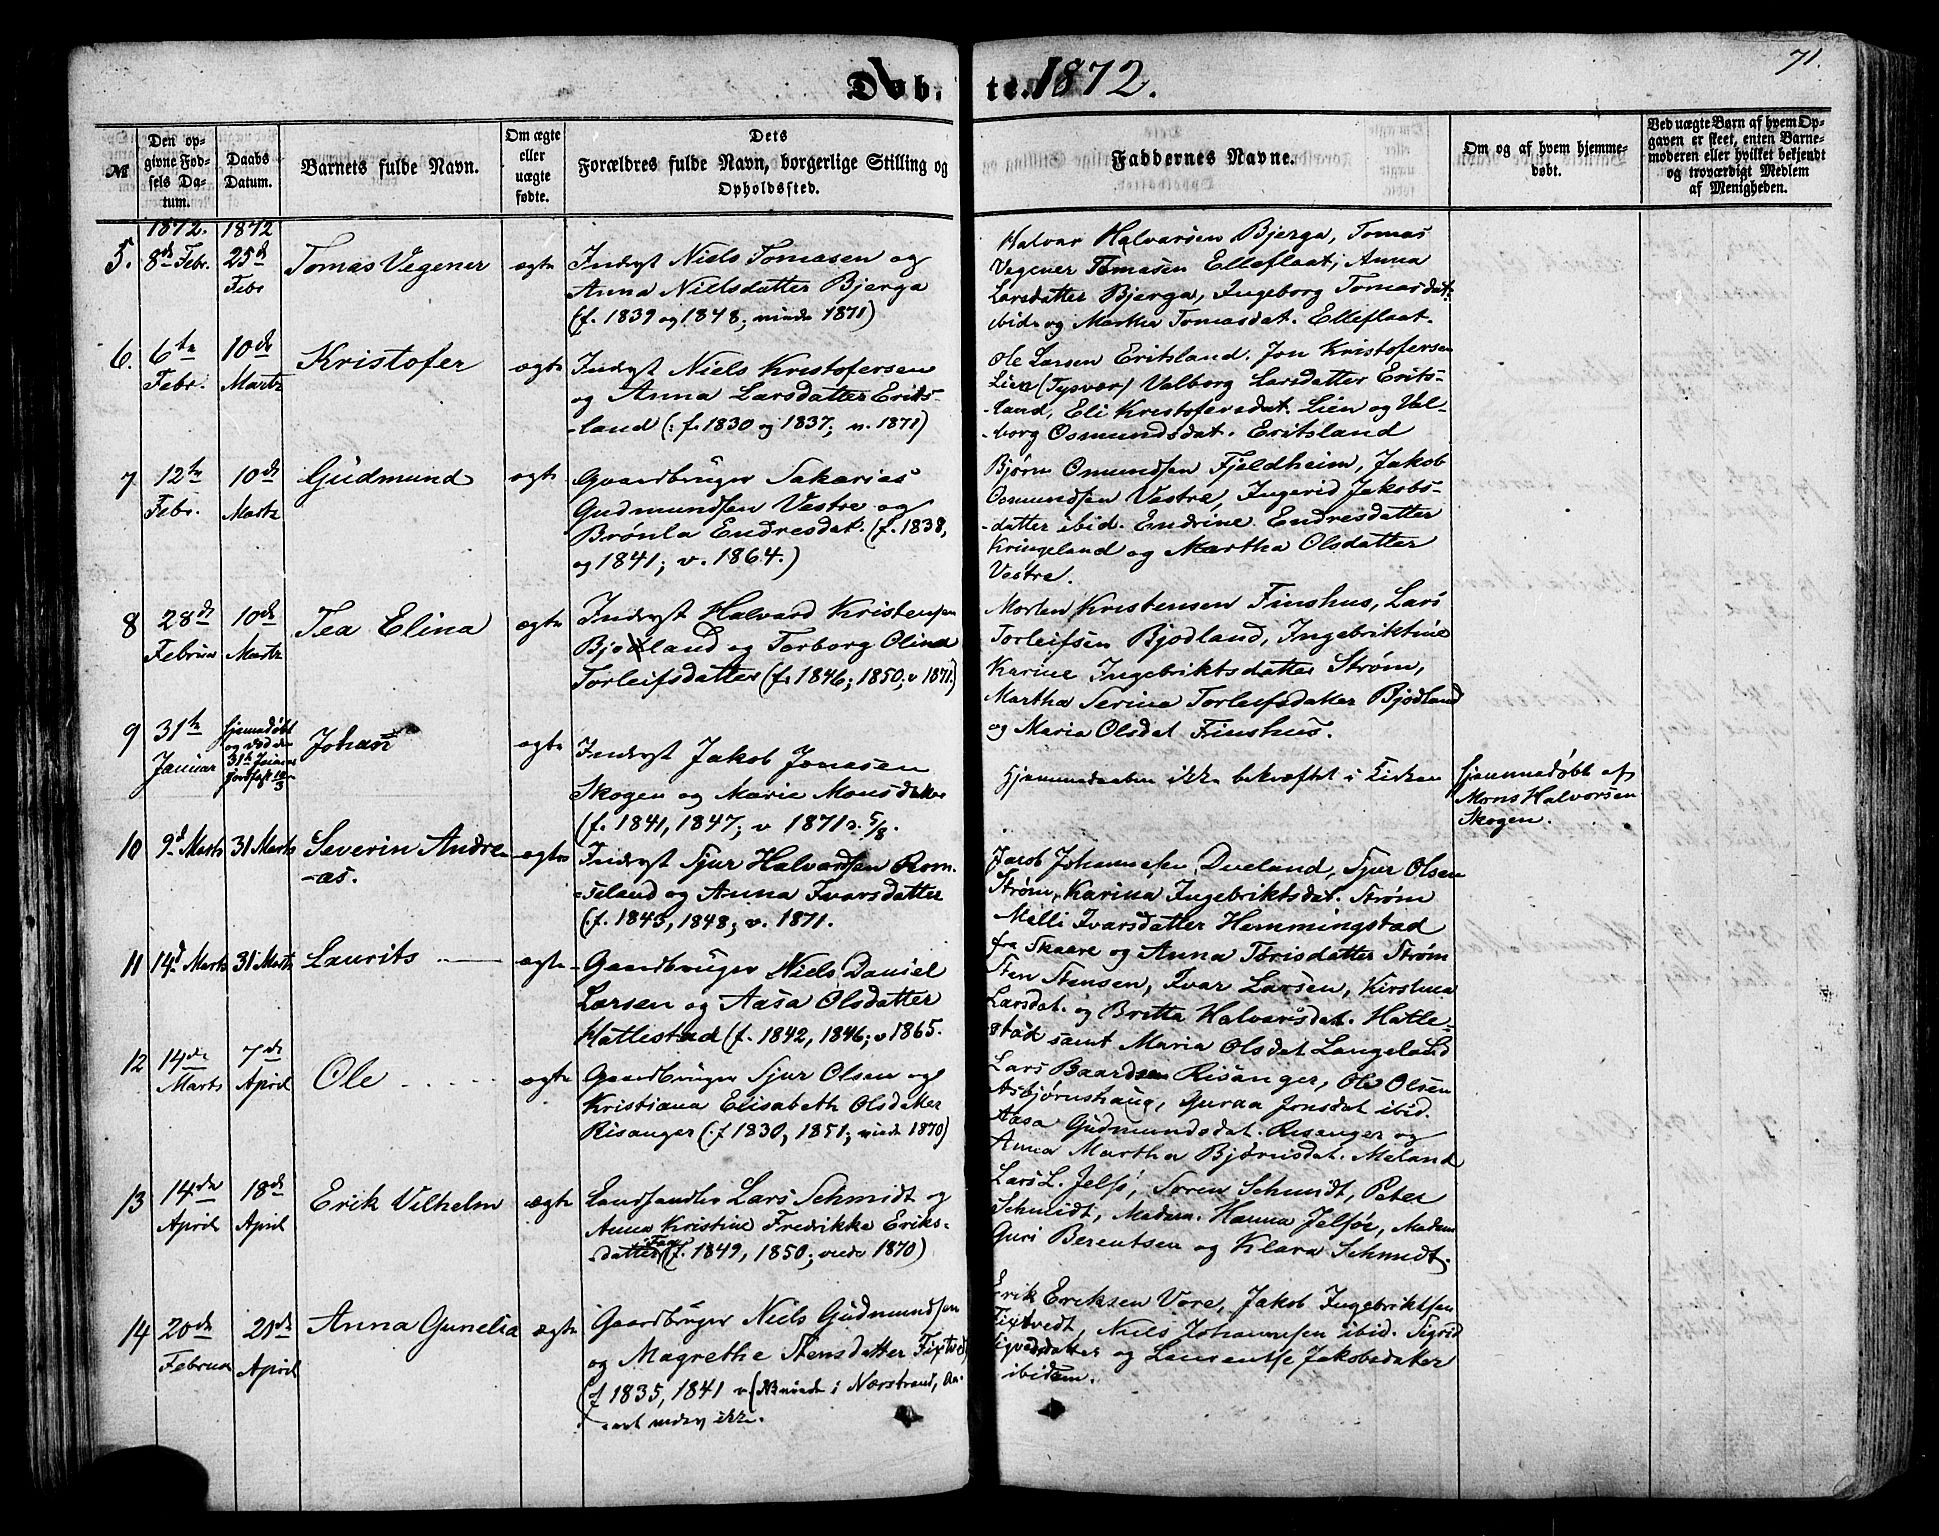 71.
Døbte. 1872.
№
Den opgivne Fødsels Datum.
Daabs Datum.
Barnets fulde Navn.
Om ægte eller uægte fødte.
Dets Forældres fulde Navn, borgerlige Stilling og Opholdssted.
Faddernes Navne.
Om og af hvem hjemmedøbt.
Ved uægte Børn af hvem Opgaven er skeet, enten Barnemoderen eller hvilket bekjendt og troværdigt Medlem af Menigheden.
1872. 1872
5. 8de Febr. 25de Febr
Tomas Vegener
ægte
Inderst Niels Tomasen og
Anna Nielsdatter Bjerga
(f. 1839 og 1848; viede 1871)
Halvar Halvarsen Bjerga, Tomas
Vegener Tomasen Elleflaat, Anna
Larsdatter Bjerga, Ingeborg Tomasdat.
ibid. og Martha Tomasdat. Elleflaat.
6. 6te Febr. 10de Marts
Kristofer
ægte
Inderst Niels Kristofersen
og Anna Larsdatter Erits-
-land (: f. 1830 og 1837; v. 1871)
Ole Larsen Eritsland. Jon Kristofersen
Lien (Tysvær) Valborg Larsdatter Erits-
-land, Eli Kristofersdat. Lien og Val-
-borg Osmundsdat. Eritsland
7 12te Febr. 10de Marts
Gudmund
ægte
Gaardbruger Sakarias
Gudmundsen Vestre og
Brønla Endresdat. (f. 1838,
og 1841; v. 1864.)
Bjørn Omundsen Fjeldheim, Jakob
Osmundsen Vestre, Ingerid Jakobs-
-datter ibid. Endrine Endresdatter
Kringeland og Martha Olsdatter
Vestre.
8 28de Februar 10de Marts
Tea Elina
ægte
Inderst Halvard Kristensen
Bjodland og Torborg Olina
Torleifsdatter (f. 1846; 1850; v 1871.)
Morten Kristensen Finshus, Lars
Torleifsen Bjodland, Ingebriktine
Karine Ingebriktsdatter Strøm,
Martha Serine Torleifsdatter Bjodland
og Maria Olsdat Finshus.
9 31te Januar
hjemmedøbt
og død den
31te Januar
jordfæst 10/3
Johan
ægte
Inderst Jakob Jonasen
Skogen og Marie Monsdatter
(f. 1841, 1847; v 1871 5/8.
Hjemmedaaben ikke bekræftet i Kirken
hjemmedøbt af
Mons Halvorsen
Skogen.
10 9de Marts 31 Marts
Severin Andre-
-as.
ægte
Inderst Sjur Halvardsen Rom-
-seland og Anna Ivarsdatter
(f. 1843, 1848; v. 1871.
Jacob Johannesen Dueland, Sjur Olsen
Strøm, Karina Ingebriktsdat. Strøm
Melli Ivarsdatter Hemmingstad
fra Skaare og Anna Torisdatter Strøm
11 14de Marts 31 Marts
Laurits
ægte
Gaardbruger Niels Daniel
Larsen og Aasa Olsdatter
Hatlestad (f. 1842, 1846; v 1865.
Sten Stensen, Ivar Larsen, Kirstina
Larsdat. og Britta Halvarsdat. Hatle-
stad samt Maria Olsdat Langeland
12 14de Marts 7de April
Ole
ægte
Gaardbruger Sjur Olsen og
Kristiana Elisabeth Olsdatter
Risanger (: f 1830, 1851; viede 1870)
Lars Baardsen Risanger, Ole Olsen
Asbjørnshaug, Guraa Jonsdat ibid.
Aasa Gudmundsdat. Risanger og
Anna Martha Bjørnsdat. Meland
13 14de April 18de April
Erik Vilhelm
ægte
Landhandler Lars Schmidt og
Anna Kristine Fredrikke Eriks-
-datter (f. 1849, 1850; viede 1870)
Lars L. Jelsø, Søren Schmidt, Peter
Schmidt, Madam. Hanna Jelsø, Madam
Guri Berentsen og Klara Schmidt.
14 20de Februar 21de April
Anna Gunelia
ægte
Gaardbruger Niels Gudmundsen
og Magrethe Stensdatter Fixtvedt
(f 1835, 1841 v (NB viede i Nærstrand,
Erik Eriksen Vore, Jakob Ingebriktsen
Fixtvedt, Niels Johannesen ibid. Sigrid
Sigvedsdatter og Laurentse Jakobsdatter
ibidem.